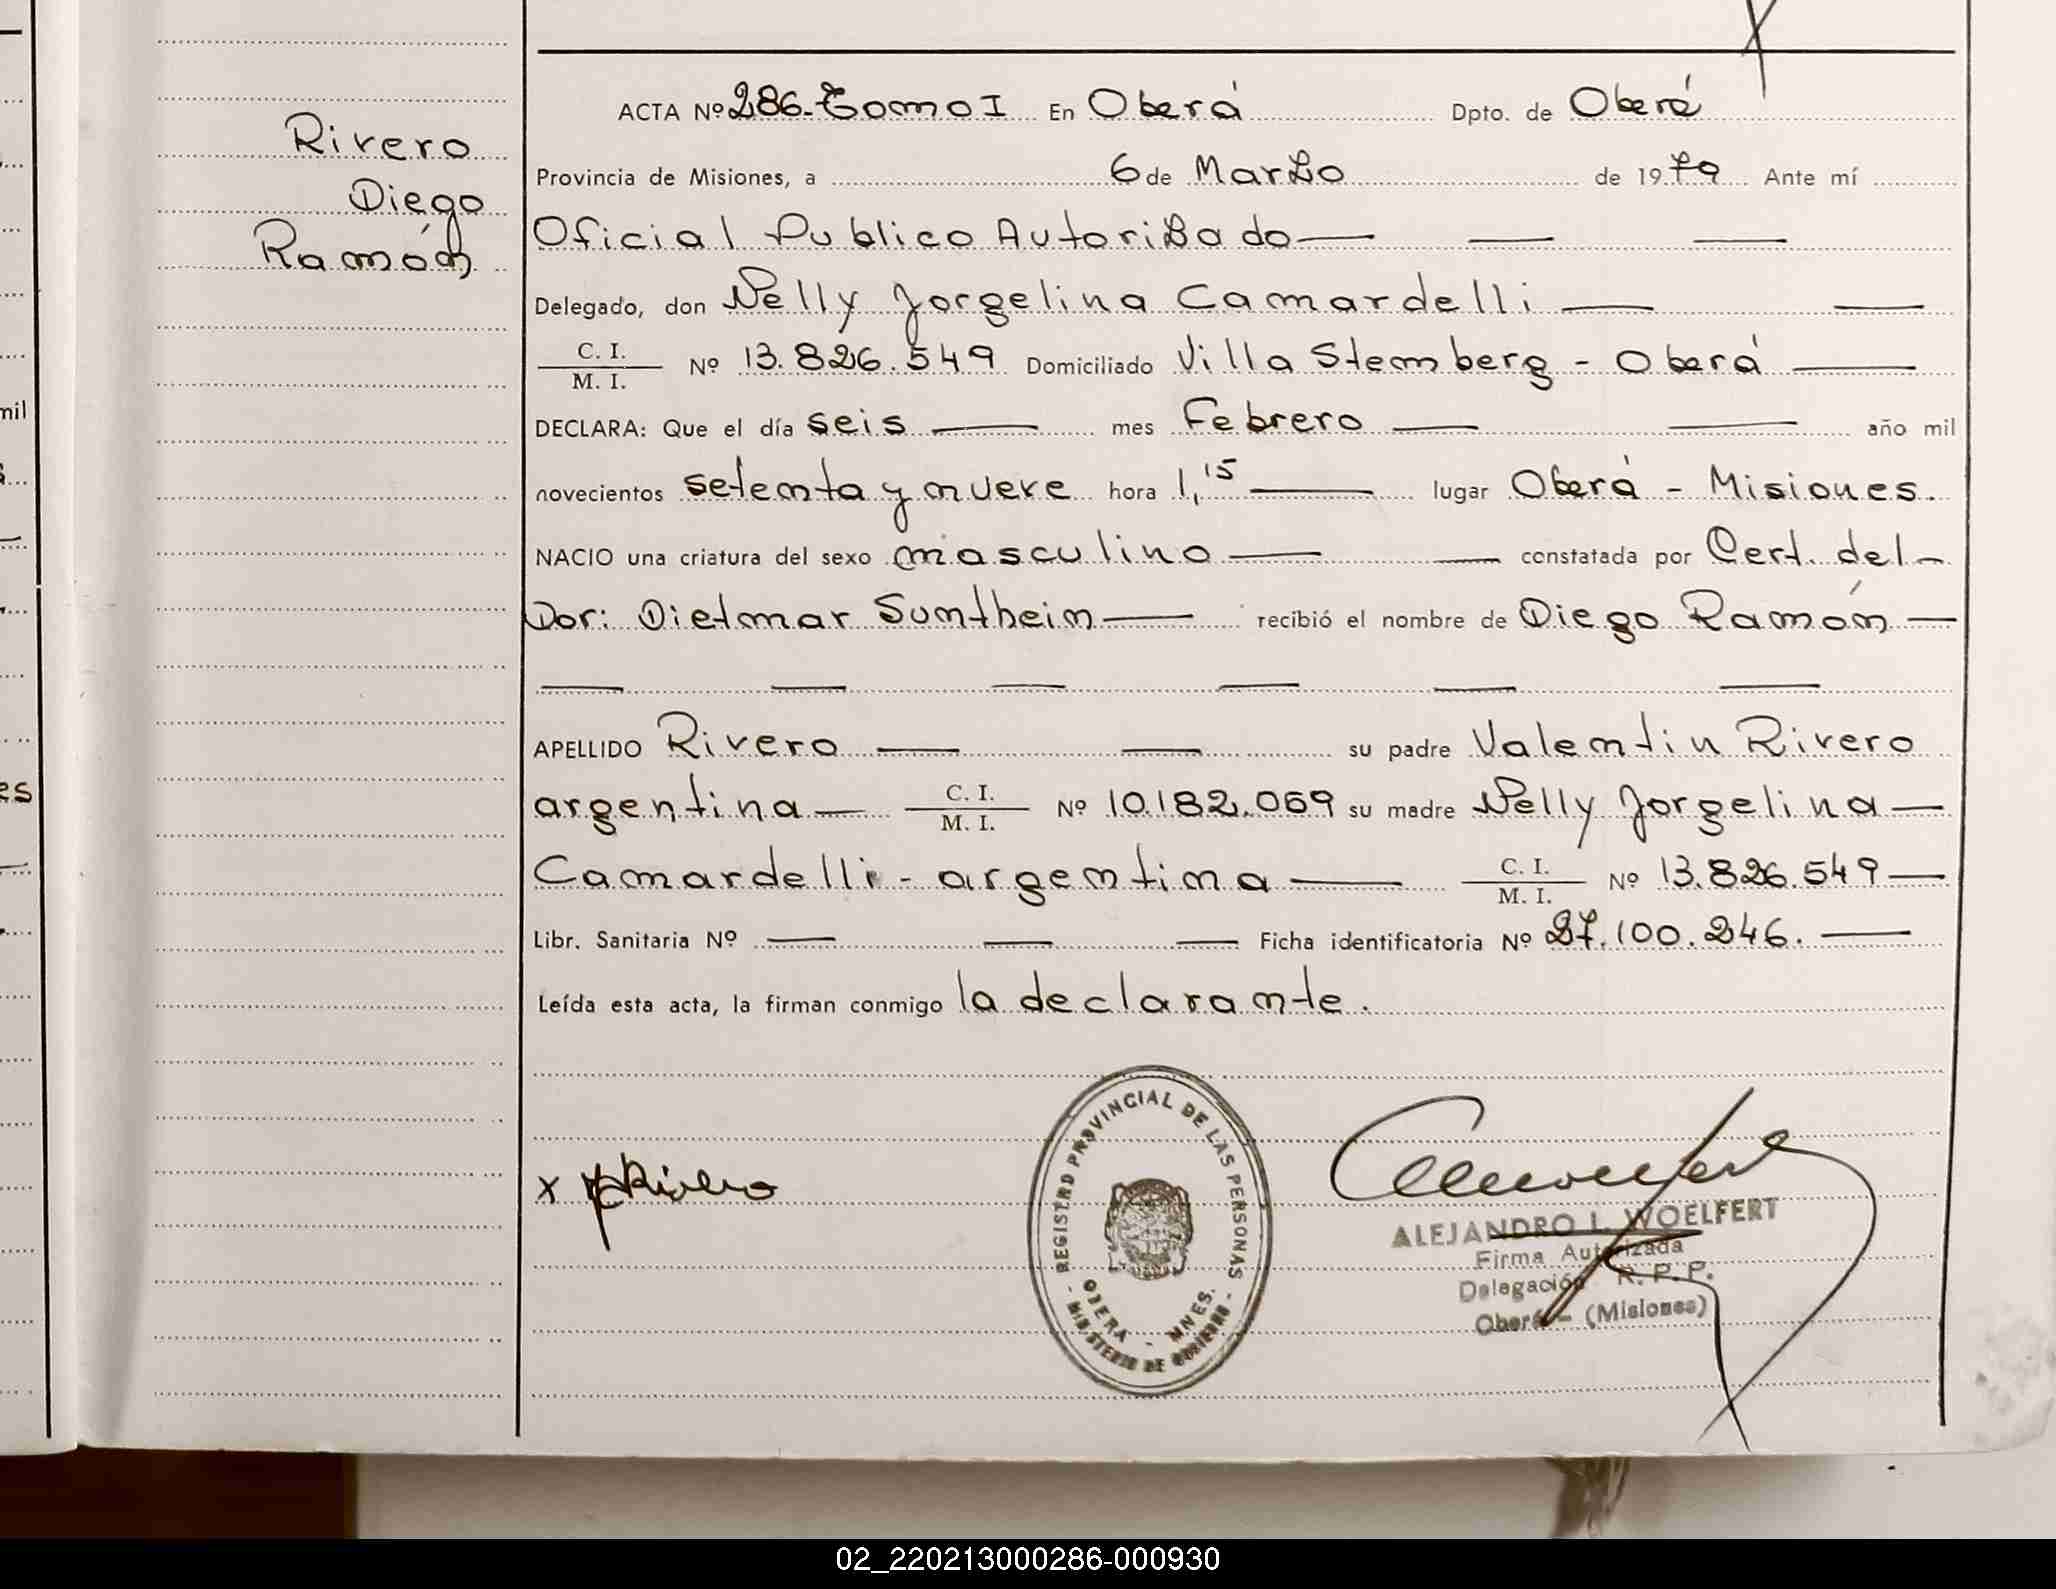 Rivero
Diego
Ramón
ACTA Nº 286. Tomo I En Oberá Dpto. de Oberá
Provincia de Misiones, a 6 de Marzo de 1979 Ante mí
Oficial Publico Autorizado
Delegado, don Nelly Jorgelina Camardelli
C. I.
M. I. Nº 13.826.549 Domiciliado Villa Stemberg - Oberá
DECLARA: Que el día seis mes Febrero año mil
novecientos setenta y nueve hora 1,15 lugar Oberá - Misiones.
NACIO una criatura del sexo masculino constatada por Cert. del
Dor: Dietmar Sumthein recibió el nombre de Diego Ramón
APELLIDO Rivero su padre Valentin Rivero
argentina C. I. M. I. Nº 10.182.069 su madre Nelly Jorgelina
Camardelli - argentina C. I. M. I. Nº 13.826.549
Libr. Sanitaria Nº Ficha identificatoria Nº 27.100.246.
Leída esta acta, la firman conmigo la declarante.
REGISTRO PROVINCIAL DE LAS PERSONAS
OBERA - MNES.
MINISTERIO DE GOBIERNO
x Rivero
ALEJANDRO L. WOELFERT
Firma Autorizada
Delegación R. P. P.
Oberá - (Misiones)
mil
es
02_220213000286-000930